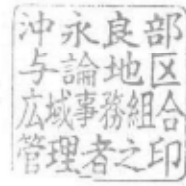 沖永良部
与論地区
広域事務組合
管理者之印